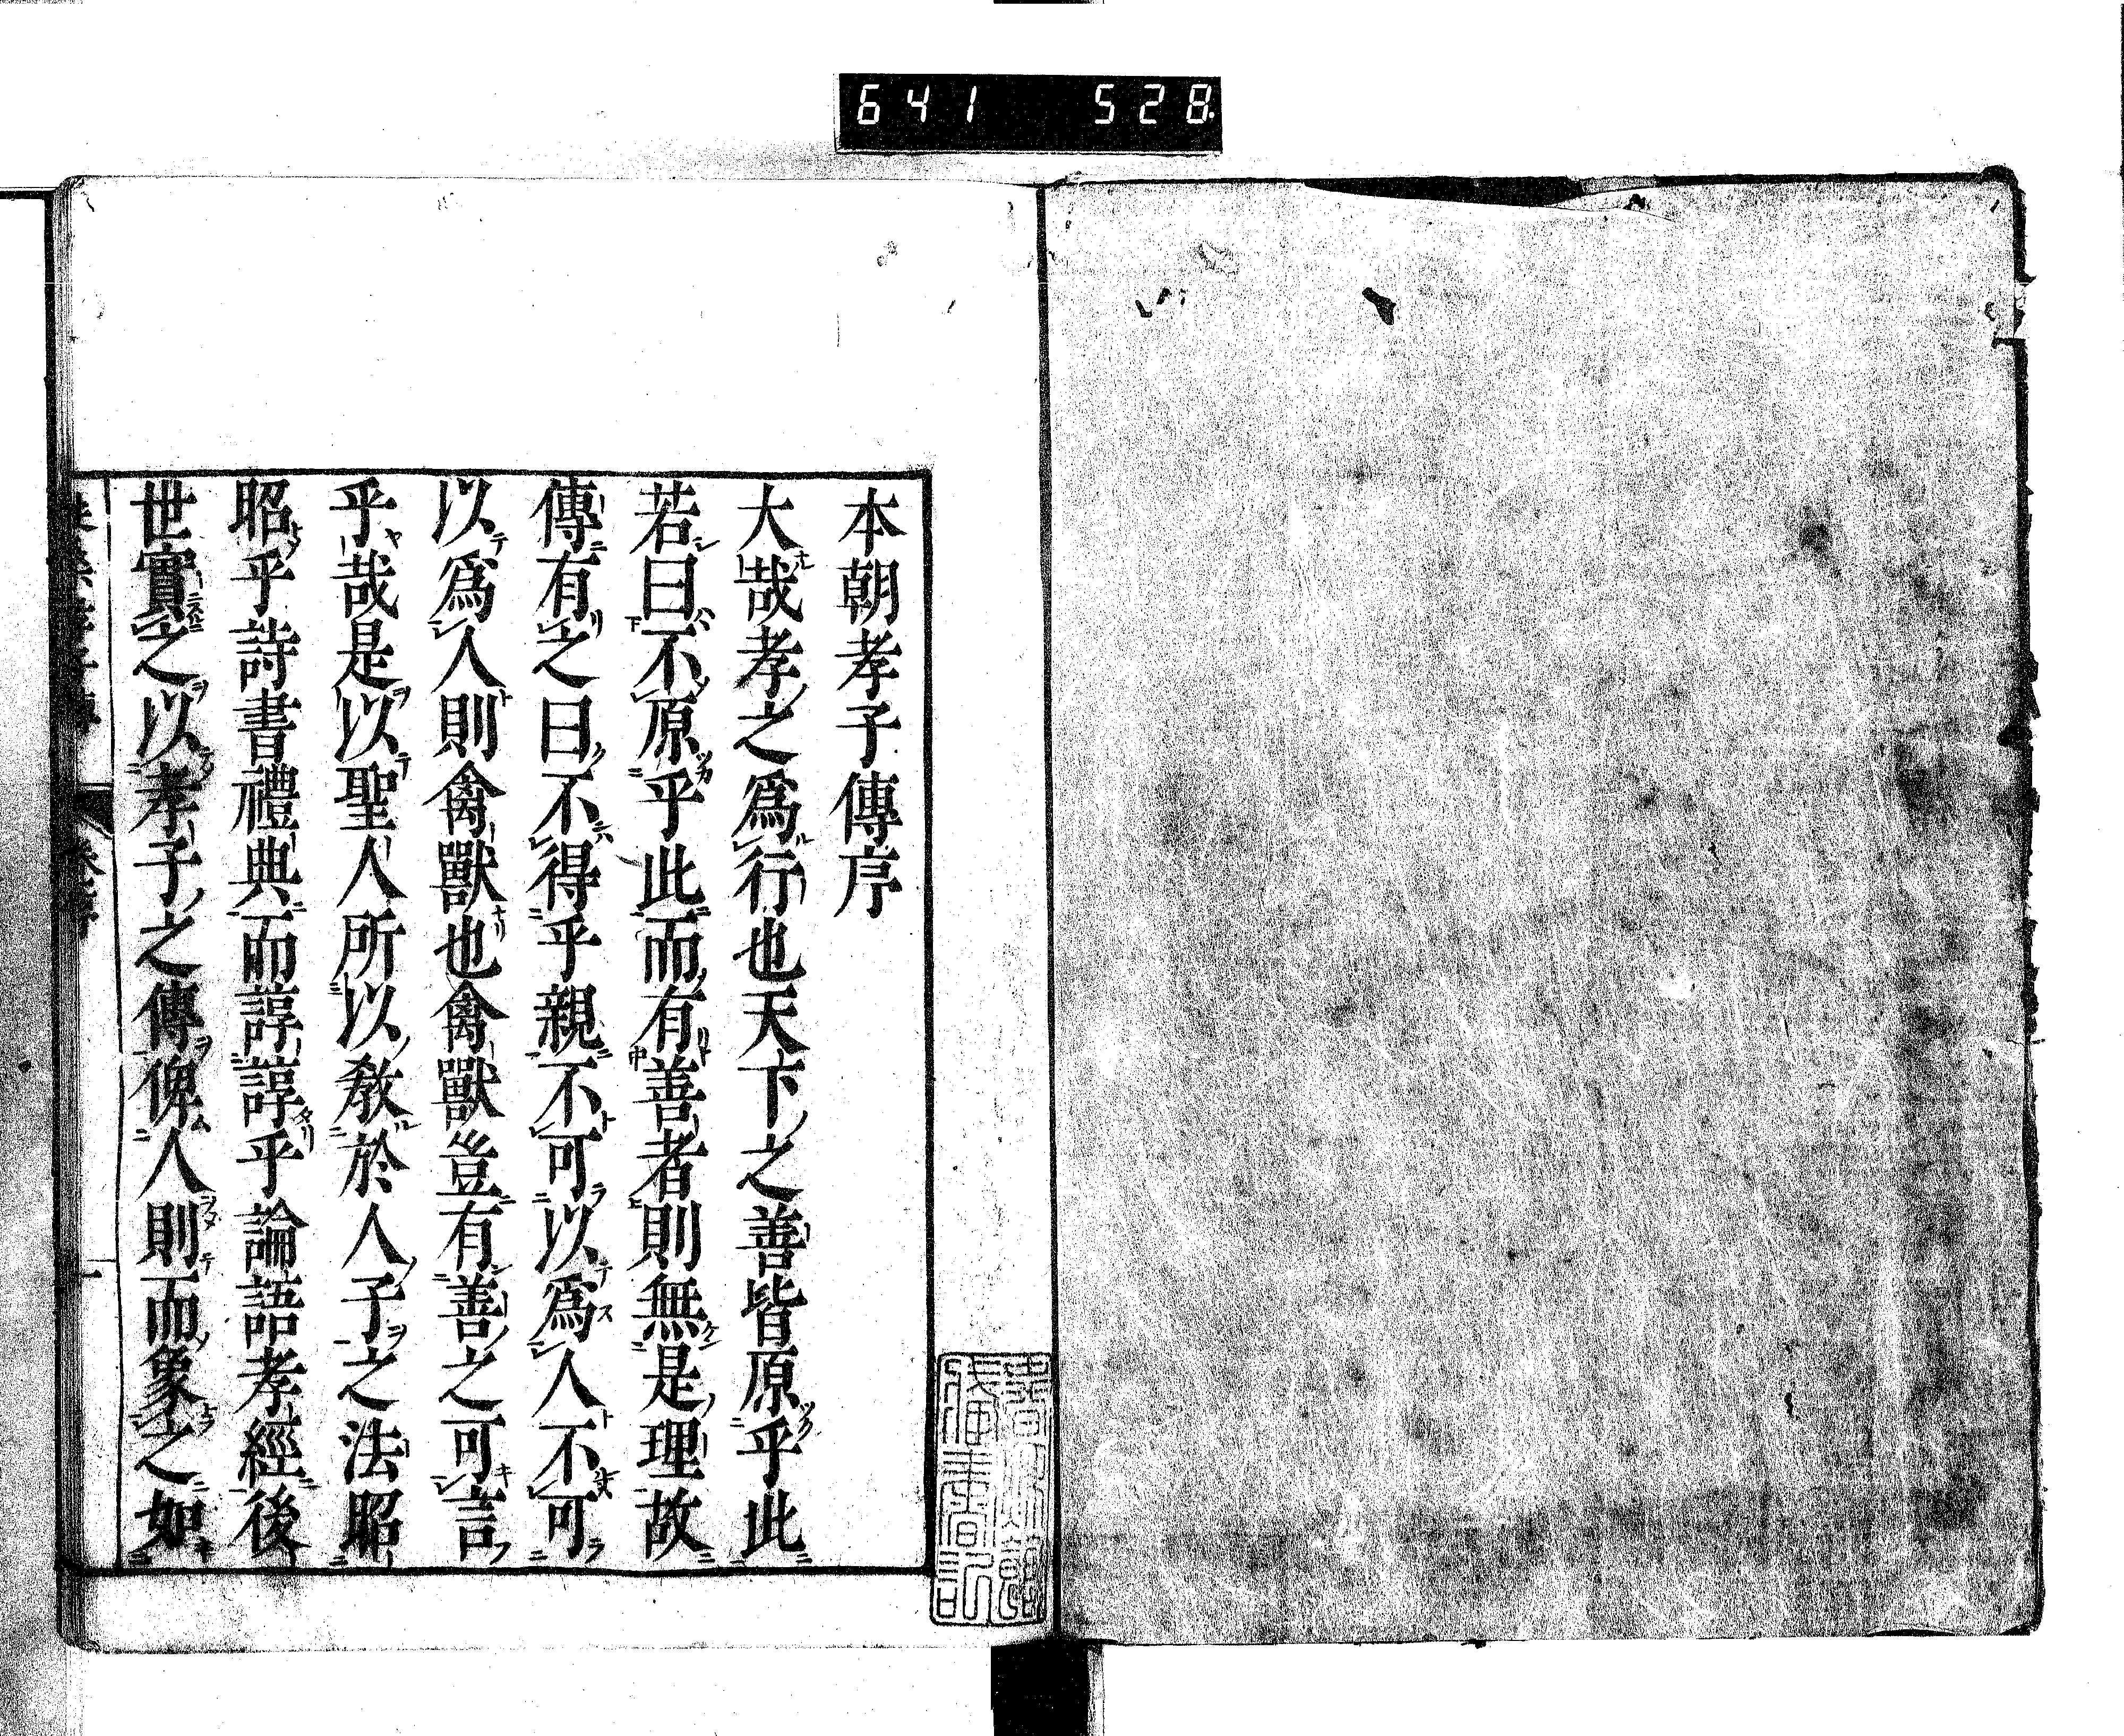 641 528
本朝孝子傳序
大哉孝之爲行也天下之善皆原乎此
若曰不原乎此而有善者則無是理故
傳有之曰不得乎親不可以爲人不可
以爲人則禽獸也禽獸豈有善之可言
乎哉是以聖人所以教於人子之法昭
昭乎詩書禮典而諄諄乎論語孝經後
世實之以孝子之傳俾人則而象之如